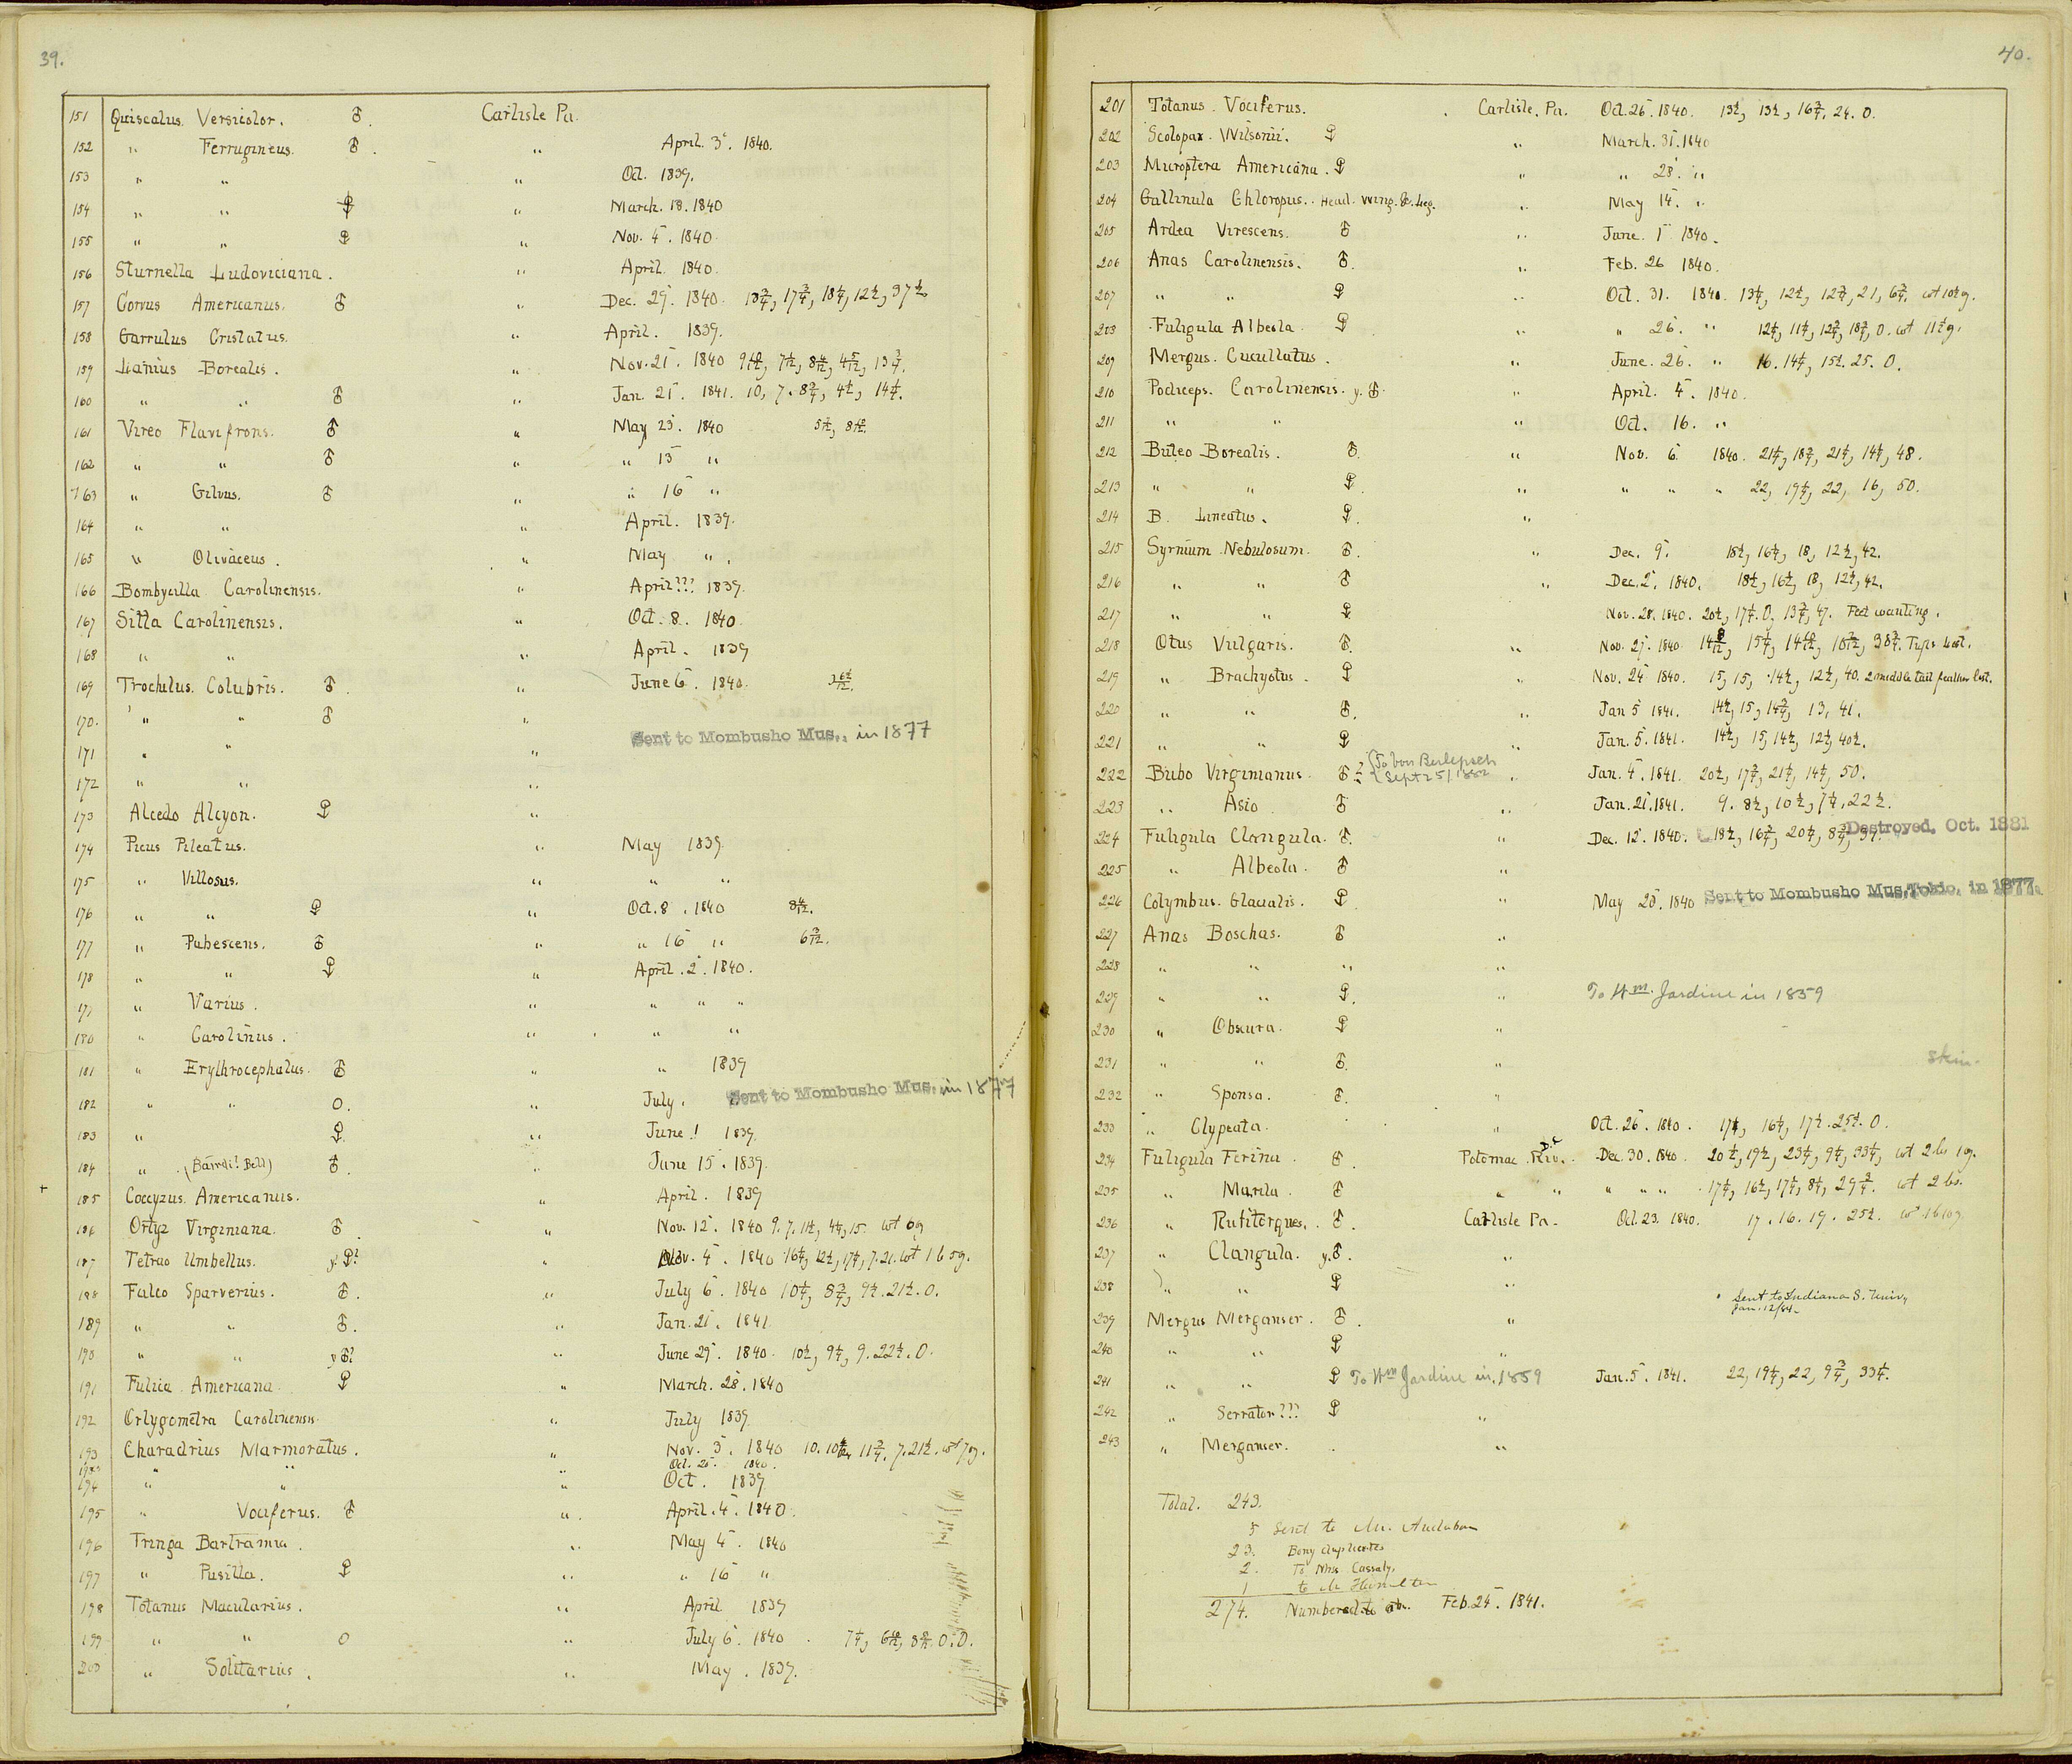 39.
151 Quiscalus Versicolor. ♂. Carlisle Pa.
152 " Ferrugineus. ♂. " April. 3. 1840.
153 " " " Oct. 1839.
154 " " ♀ " March. 18. 1840
155 " " ♀ " Nov. 4. 1840
156 Sturnella Ludoviciana. " April. 1840.
157 Corvus Americanus. ♂ " Dec. 29. 1840. 13¾, 17¾, 18½, 12½, 37½
158 Garrulus Cristatus. " April. 1839.
159 Lanius Borealis. " Nov. 21. 1840
160 " " ♂ " Jan. 21. 1841. 10, 7. 8¾, 4½, 14¼.
161 Vireo Flavifrons. ♂ " May 23. 1840
162 " " ♂ " " 15 "
163 " Gilvus. ♂ " " 16 "
164 " " " April. 1839.
165 " Olivaceus. " May "
166 Bombycilla Carolinensis. " April??? 1839.
167 Sitta Carolinensis. " Oct. 8. 1840
168 " " " April. 1839
169 Trochilus. Colubris. ♂. " June 6. 1840.
170. " " ♂ "
171 " " " Sent to Mombusho Mus., in 1877
172 " " "
173 Alcedo Alcyon. ♀ "
174 Picus Pileatus. " May 1839
175 " Villosus. " " "
176 " " ♀ " Oct. 8. 1840 8 4/12.
177 " Pubescens. ♂ " " 16 " 6 3/12.
178 " " ♀ " April. 2. 1840.
179 " Varius. " " " "
180 " Carolinus. " " "
181 " Erythrocephalus. ♂ " " 1839
182 " " O. " July. " Sent to Mombusho Mus. in 1877
183 " ♀ " June! 1839
184 " (Bairdi! Bell) ♂. " June 15. 1839.
185 Coccyzus. Americanus. " April. 1839
186 Ortyx Virginiana. ♂. " Nov. 12. 1840 9. 7. 11½, 4¼, 15. wt 6g
187 Tetrao Umbellus. y. ♀? " Nov. 4. 1840 16¼, 12½, 17¼, 7. 21. wt 1 b 5g.
188 Falco Sparverius. ♂. " July 6. 1840 10¼, 8¾, 9½. 21½. 0.
189 " " ♂. " Jan. 21. 1841
190 " " y ♂? " June 29. 1840. 10½, 9¼, 9. 22½. 0.
191 Fulica Americana ♀ " March. 28. 1840
192 Ortygometra Carolinensis " July 1839
193 Charadrius Marmoratus. " Nov. 3. 1840 10. 10½ 11¾. 7. 21½. wt 7g.
" " " Oct. 1840.
194 " " " Oct. 1839
195 " Vociferus. ♂ " April. 4. 1840.
196 Tringa Bartramia. " May 4. 1840
197 " Pusilla. ♀ " " 16 "
198 Totanus Macularius. " April 1839
199 " " O " July 6. 1840
200 " Solitarius. " May. 1839.
40.
201 Totanus. Vociferus. Carlisle. Pa. Oct. 26. 1840. 13½, 13½, 16¾. 24. 0.
202 Scolopax. Wilsonii. ♀ " March. 31. 1840
203 Microptera Americana. ♀ " " 28. "
204 Gallinula Chloropus. Head. Wing. &. Leg. " May 14. "
205 Ardea Virescens. ♂ " June. 1 1840.
206 Anas Carolinensis. ♂. " Feb. 26 1840.
207 " " ♀ " Oct. 31. 1840. 13¼, 12½, 12¾, 21, 6¾. wt 10½ g.
208 Fuligula Albeola. ♀ " " 26. " 12¼, 11¼, 12¾, 18¾, 0. wt 11½ g.
209 Mergus. Cucullatus. " June. 26. " 16. 14¼, 15½. 25. 0.
210 Podiceps. Carolinensis. y. ♂. " April. 4. 1840.
211 " " " Oct. 16. "
212 Buteo Borealis. ♂. " Nov. 6 1840. 21¼, 18¾, 21¼, 14¼, 48.
213 " " ♀. " " " " 22, 19¼, 22, 16, 50.
214 B. Lineatus. ♀. "
215 Syrnium Nebulosum. ♂. " Dec. 9. 18½, 16½, 18, 12½, 42.
216 " " ♂ " Dec. 2. 1840. 18½, 16½, 18, 12½, 42.
217 " " ♀ Nov. 28. 1840. 20½, 17¼. 0, 13¾, 47. Feet wanting.
218 Otus Vulgaris. ♂. " Nov. 27. 1840 Tips lost.
219 " Brachyotus. ♀ " Nov. 24 1840. 15, 15, 14½, 12½, 40. 2 middle tail feather lost.
220 " " ♂. " Jan 5 1841. 14½, 15, 14¾, 13, 41.
221 " " ♀ " Jan. 5. 1841. 14½, 15, 14½, 12½, 40½.
222 Bubo Virginianus. ♂ ? { To von Berlepsch Sept 25/1882 " Jan. 4. 1841. 20½, 17¾, 21¼, 14¼, 50.
223 " Asio ♂ " Jan. 21. 1841. 9. 8½, 10½, 7¼, 22½.
224 Fuligula Clangula. ♂. " Dec. 12. 1840. 18½, 16¾, 20¼, 8¾, 37. Destroyed, Oct. 1881
225 " Albeola. ♂ "
226 Colymbus. Glacialis. ♀. " May 20. 1840 Sent to Mombusho Mus, Tokio, in 1877.
227 Anas Boschas. ♂ "
228 " " " "
229 " " ♀. " To Wm. Jardine in 1859
230 " Obscura. ♀ "
231 " " ♂. " skin.
232 " Sponsa. ♂. "
233 " Clypeata. " Oct. 26. 1840. 17¼, 16½, 17½. 25½. 0.
234 Fuligula Ferina. ♂. Potomac. Riv. D.C Dec. 30. 1840. 20½, 19½, 23¼, 9¼, 33¼, wt 2 lb 1 g.
235 " Marila. ♂ " " " " " 17¼, 16½, 17¼, 8½, 29¾. wt 2 lbs.
236 " Rufitorques. ♂. Carlisle Pa. Oct. 23. 1840. 17. 16. 19. 25½.
237 " Clangula. y. ♂. "
238 " " ♀ "
Sent to Indiana S. Univ,
Jan. 12/84
239 Mergus Merganser. ♂. "
240 " " ♀ "
241 " " ♀ To Wm Jardine in 1859 Jan. 5. 1841. 22, 19¼, 22, 9¾, 33¼.
242 " Serrator??? ♀ "
243 " Merganser. "
Total. 243.
5 Sent to Mr. Audubon
23. Bony duplicates
2. To Cassaly.
1 to
274. Numbered Feb. 24. 1841.